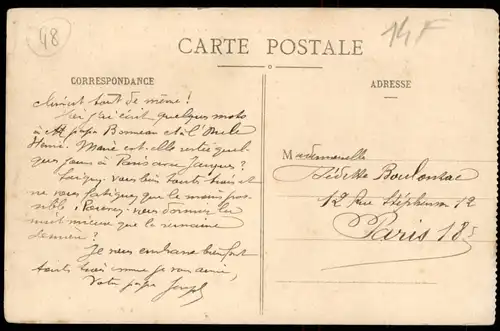 48
14F
CARTE POSTALE
CORRESPONDANCE
ADRESSE
tout de même !
j'ai écrit quelques mots
à papa Bonneau et à l'Oncle
Henri. Marie est-elle restée quel
que jours à Paris avec Jacques ?
Soignez-vous bien toutes trois et
ne vous fatiguez que le moins pos
sible. Pouvez-vous dormir la
nuit mieux que la semaine
dernière ?
Je vous embrasse bien fort
toutes trois comme je vous aime,
Votre papa Joseph
Mademoiselle
Boulonzac
12 Rue Stephenson 12
Paris 18e